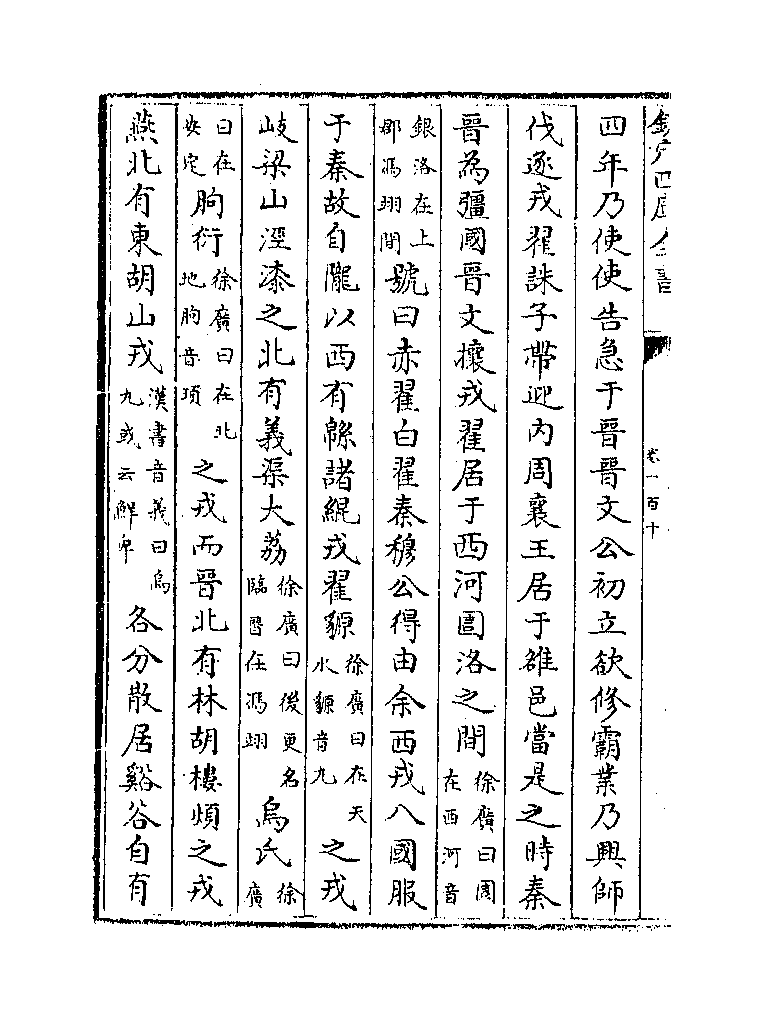 欽定四庫全書
卷一百十
四年乃使使告急于晉晉文公初立欲修霸業乃興師
伐逐戎翟誅子帶迎内周襄王居于雒邑當是之時秦
晉為彊國晉文攘戎翟居于西河圁洛之間徐廣曰圁在西河音
銀洛在上郡馮翊間號曰赤翟白翟秦穆公得由余西戎八國服
于秦故自隴以西有緜諸緄戎翟豲徐廣曰在天水豲音丸之戎
岐梁山涇漆之北有義渠大荔徐廣曰後更名臨晉在馮翊烏氏徐廣
曰在安定朐衍徐廣曰在北地朐音項之戎而晉北有林胡樓煩之戎
燕北有東胡山戎漢書音義曰烏丸或云鮮卑各分散居谿谷自有